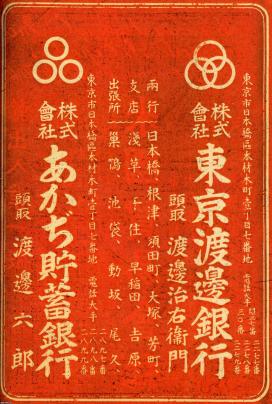 東京市日本橋區本材木町壹丁目七番地
電話大手
株式會社
東京渡邊銀行
頭取 渡邊治右衞門
兩行 日本橋、根津、須田町、大塚、芳町、
支店 淺草、千住、早稲田、吉原、
出張所 巢鴨、池袋、動坂、尾久、
東京市日本橋區本材木町壹丁目七番地
電話大手
株式會社
あかぢ貯蓄銀行
頭取 渡邊六郎